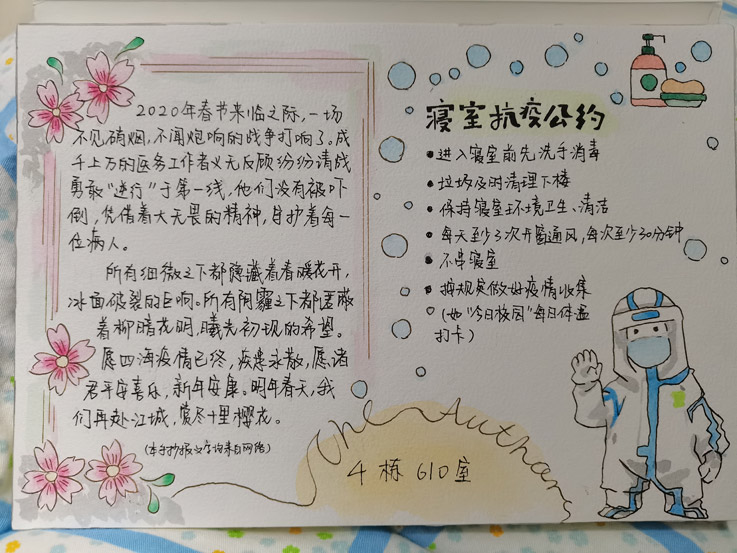 2020年春节来临之际,一场
不见硝烟,不闻炮响的战争打响了。成
千上万的医务工作者义无反顾纷纷请战
勇敢“逆行”于第一线,他们没有被吓
倒,凭借着大无畏的精神,守护着每一
位病人。
所有细微之下都隐藏着春暖花开,
冰面破裂的巨响。所有阴霾之下都遮蔽
着柳暗花明,曦光初现的希望。
愿四海疫情已终,疾患永散,愿诸
君平安喜乐,新年安康。明年春天,我
们再赴江城,赏尽十里樱花。
(本手抄报文字均来自网络)
寝室抗疫公约
•进入寝室前先洗手消毒
•垃圾及时清理下楼
•保持寝室环境卫生、清洁
•每天至少3次开窗通风,每次至少30分钟
•不串寝室
•按规定做好疫情收集
(如“今日校园”每日体温
打卡)
The Authors
4栋 610室